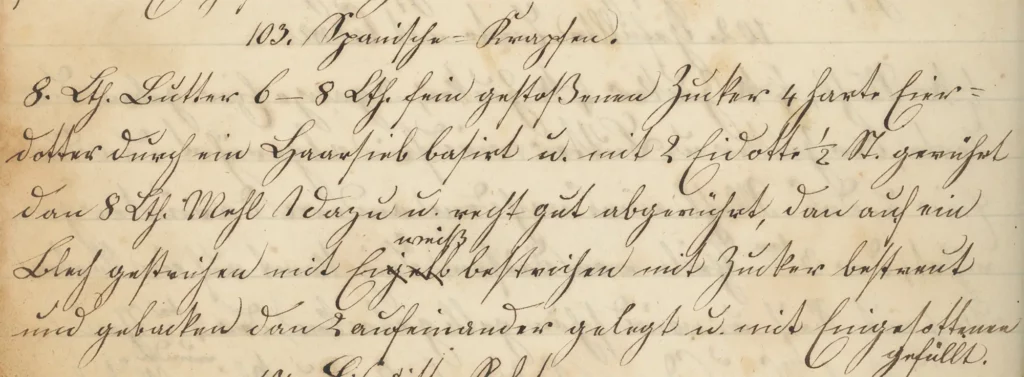 103. Spanische= Krapfen.
8. Lth. Butter 6 – 8 Lth. fein gestoßenen Zucker 4 harte Eier=
dotter durch ein Haarsieb basirt u. mit 2 Eidotte ½ St. gerührt
dan 8 Lth. Mehl dazu u. recht gut abgerührt, dan auf ein
weiß
Blech gestrichen mit Eigelb bestrichen mit Zucker bestreut
und gebacken dan 2 aufeinander gelegt u. mit Eingesottenen
gefüllt.